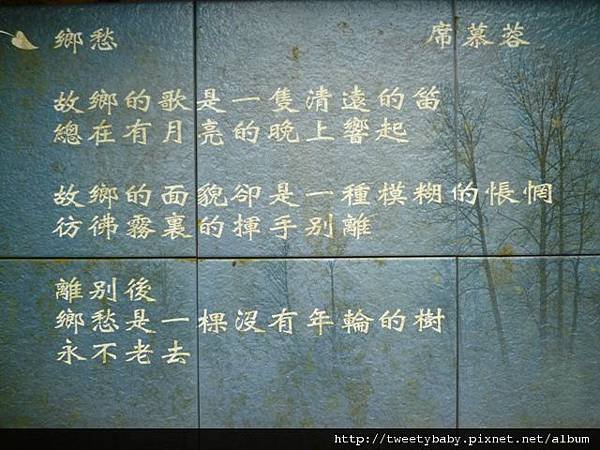 鄉愁 席慕蓉
故鄉的歌是一隻清遠的笛
總在有月亮的晚上響起
故鄉的面貌卻是一種模糊的悵惘
彷彿霧裏的揮手別離
離別後
鄉愁是一棵沒有年輪的樹
永不老去
http://tweetybaby.pixnet.net/album